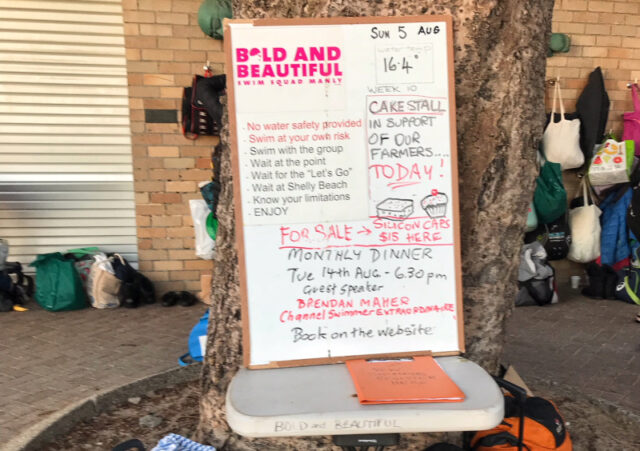 SUN 5 AUG
BOLD AND
BEAUTIFUL
SWIM SQUAD MANLY
Water temp
16.4°
WEEK 10
- No water safety provided
- Swim at your own risk
- Swim with the group
- Wait at the point
- Wait for the "Let's Go"
- Wait at Shelly Beach
- Know your limitations
- ENJOY
CAKE STALL
IN SUPPORT
OF OUR
FARMERS....
TODAY!
FOR SALE → SILICON CAPS
$15 HERE
MONTHLY DINNER
Tue 14th AUG - 6.30pm
Guest speaker
BRENDAN MAHER
Channel Swimmer EXTRAORDINAIRE
Book on the website
BOLD and BEAUTIFUL